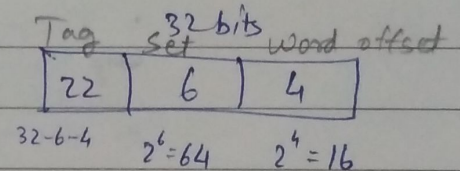 32 bits
Tag Set Word offset
22 6 4
32-6-4 2⁶=64 2⁴=16